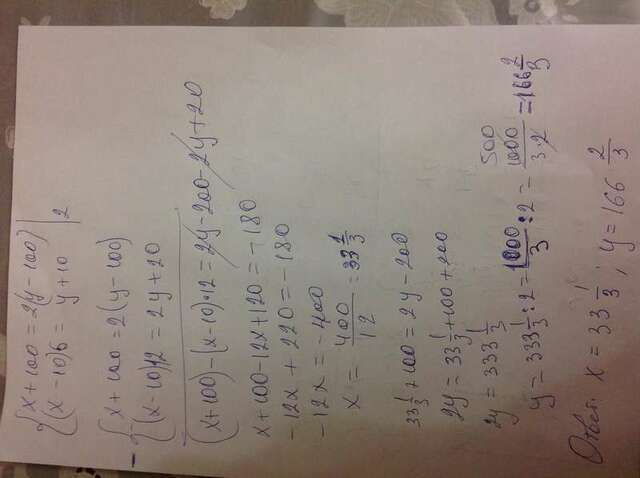 { x+100 = 2(y-100)
(x-10)6 = y+10 | 2
- { x+100 = 2(y-100)
(x-10)12 = 2y+20
(x+100)-(x-10)·12 = 2y-200-2y+20
x+100-12x+120 = -180
-12x + 220 = -180
-12x = -400
x = 400/12 = 33 1/3
33 1/3 + 100 = 2y-200
2y = 33 1/3 + 100 + 200
2y = 333 1/3
y = 333 1/3 : 2 = 1000/3 : 2 = 500 1000/3·2 = 166 2/3
Ответ: x = 33 1/3; y = 166 2/3